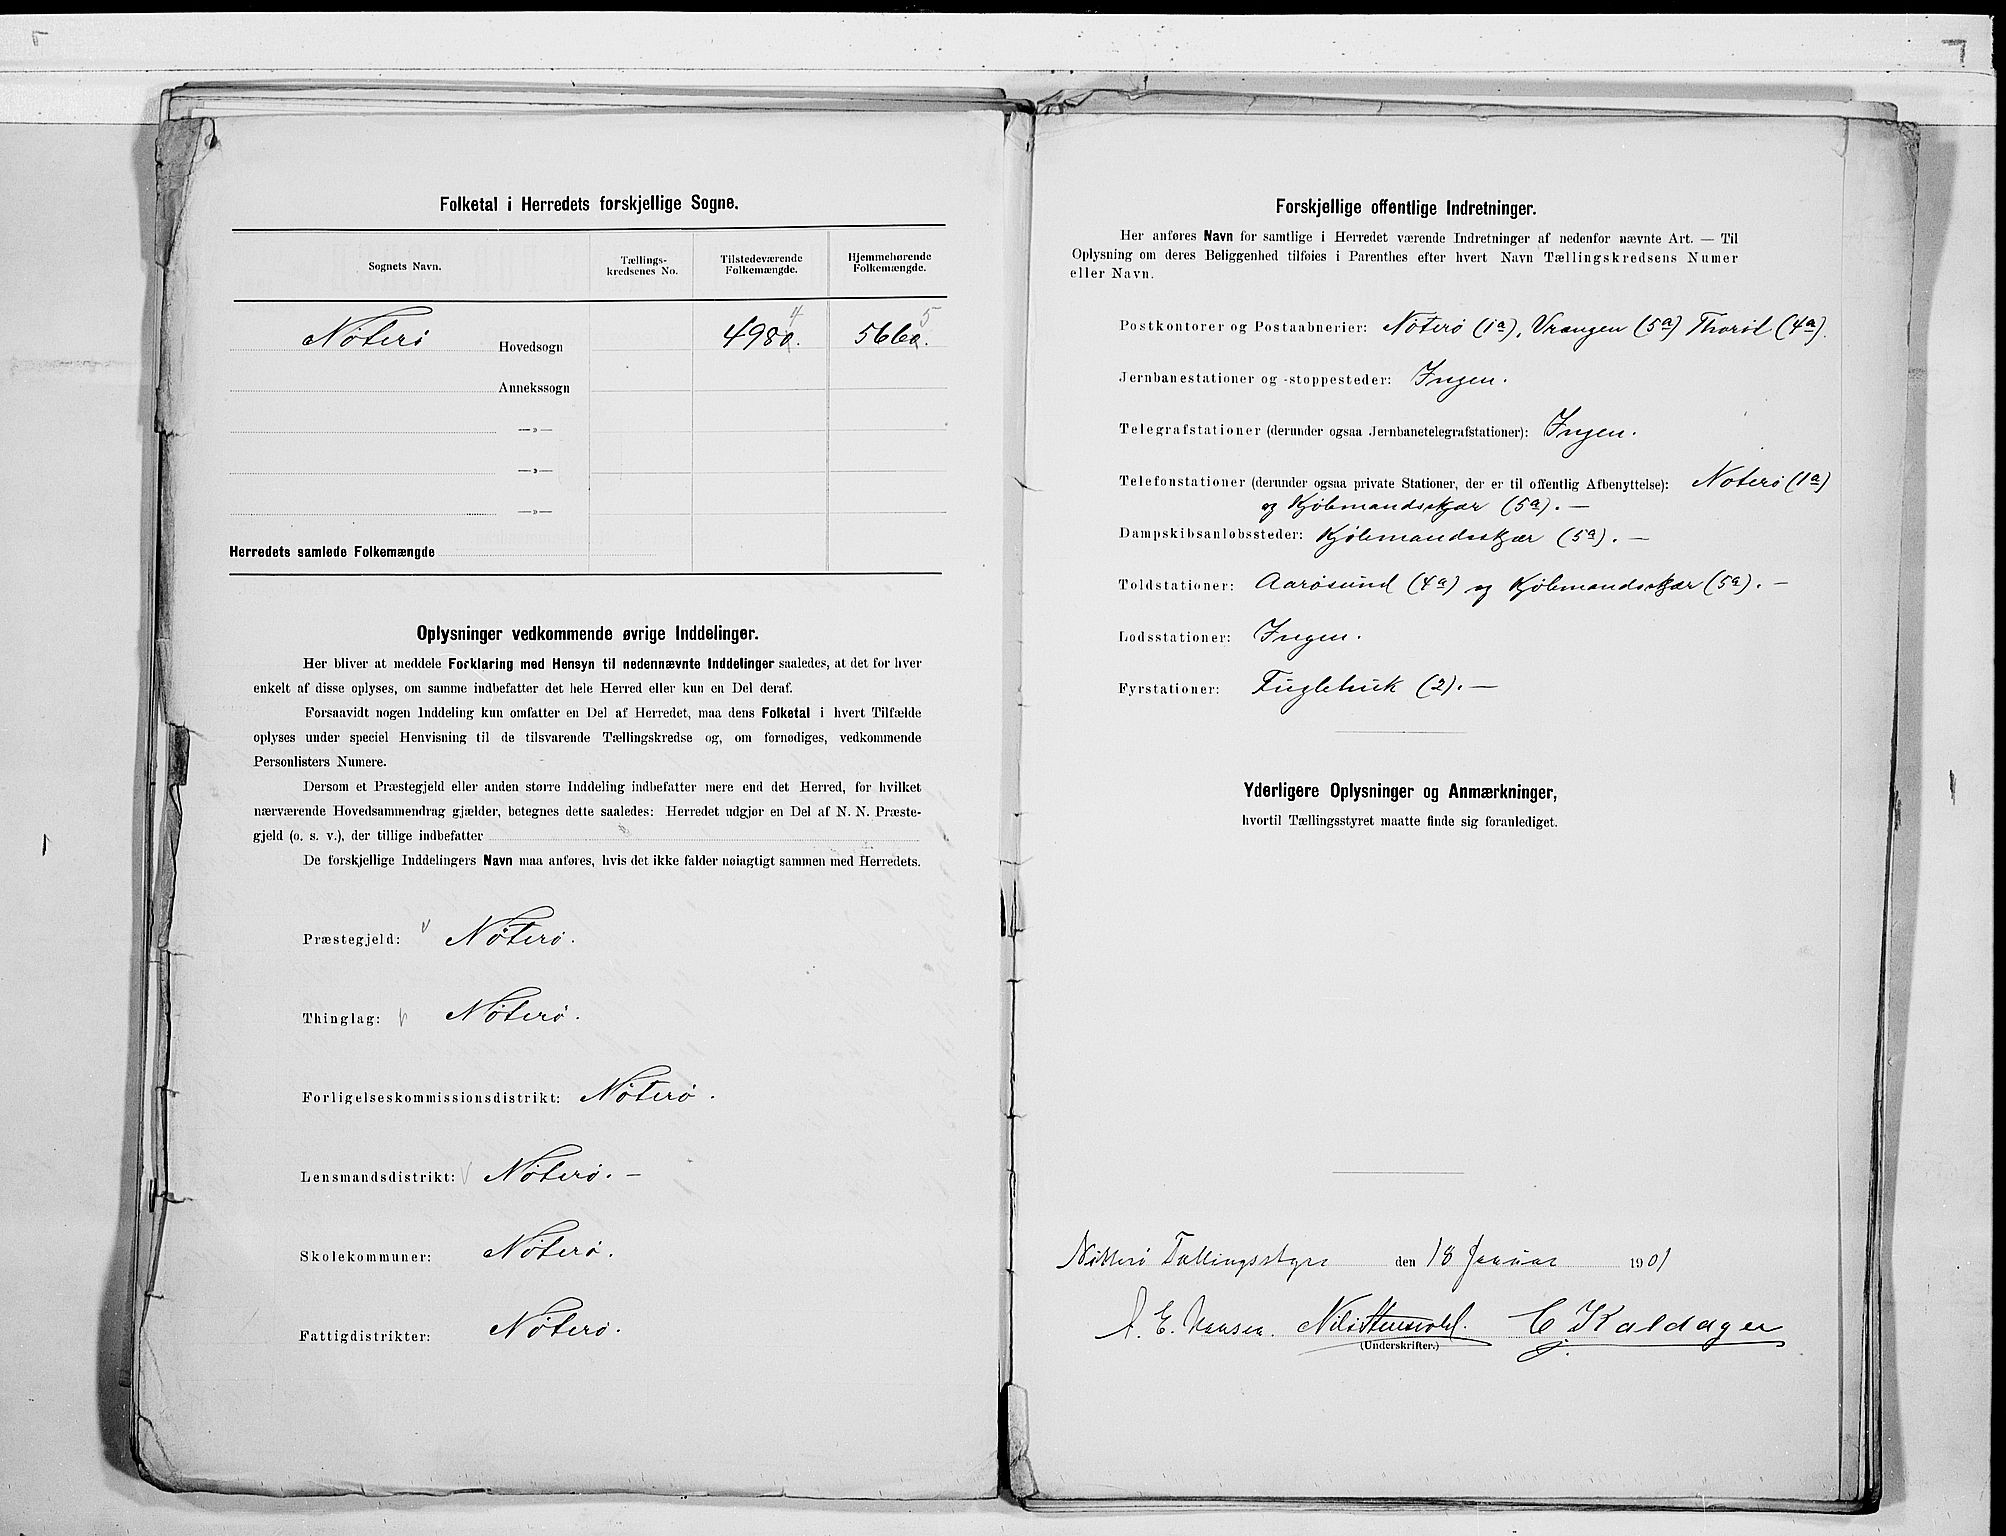 Folketal i Herredets forskjellige Sogne.
Sognets Navn.
Tællings-
kredsenes No.
Tilstedeværende
Folkemængde.
Hjemmehørende
Folkemængde.
4 5
Nøterø Hovedsogn 4980. 5660.
Annekssogn
—»—
—»—
—»—
Herredets samlede Folkemængde
Oplysninger vedkommende øvrige Inddelinger.
Her bliver at meddele Forklaring med Hensyn til nedennævnte Inddelinger saaledes, at det for hver
enkelt af disse oplyses, om samme indbefatter det hele Herred eller kun en Del deraf.
Forsaavidt nogen Inddeling kun omfatter en Del af Herredet, maa dens Folketal i hvert Tilfælde
oplyses under speciel Henvisning til de tilsvarende Tællingskredse og, om fornødiges, vedkommende
Personlisters Numere.
Dersom et Præstegjeld eller anden større Inddeling indbefatter mere end det Herred, for hvilket
nærværende Hovedsammendrag gjælder, betegnes dette saaledes: Herredet udgjør en Del af N. N. Præste-
gjeld (o. s. v.), der tillige indbefatter
De forskjellige Inddelingers Navn maa anføres, hvis det ikke falder nøiagtigt sammen med Herredets.
Præstegjeld: Nøterø.
Thinglag: Nøterø.
Forligelseskommissionsdistrikt: Nøterø.
Lensmandsdistrikt: Nøterø. —
Skolekommuner: Nøterø.
Fattigdistrikter: Nøterø.
Forskjellige offentlige Indretninger.
Her anføres Navn for samtlige i Herredet værende Indretninger af nedenfor nævnte Art. — Til
Oplysning om deres Beliggenhed tilføies i Parenthes efter hvert Navn Tællingskredsens Numer
eller Navn.
Postkontorer og Postaabnerier: Nøterø (1a), Vrangen (5a) Thorød (4a).
Jernbanestationer og -stoppesteder: Ingen.
Telegrafstationer (derunder ogsaa Jernbanetelegrafstationer): Ingen.
Telefonstationer (derunder ogsaa private Stationer, der er til offentlig Afbenyttelse): Nøterø (1a)
og Kjøbmandsskjær (5a). —
Dampskibsanløbssteder: Kjøbmandsskjær (5a). —
Toldstationer: Aarøsund (4a) og Kjøbmandsskjær (5a). —
Lodsstationer: Ingen.
Fyrstationer: Fuglehuk (2). —
Yderligere Oplysninger og Anmærkninger,
hvortil Tællingsstyret maatte finde sig foranlediget.
Nøtterø Tællingsstyre den 18 Januar 1901
A. E. Hansen. C. Kaldager
(Underskrifter.)